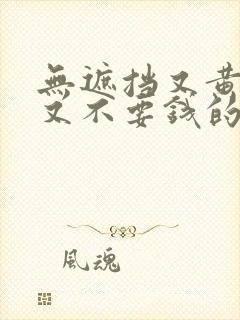 無遮挡又黄
又不要钱的
風魂